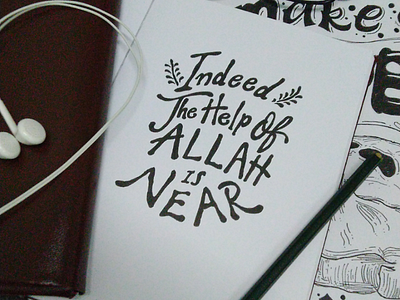 make
Indeed
The Help Of
ALLAH
IS
NEAR